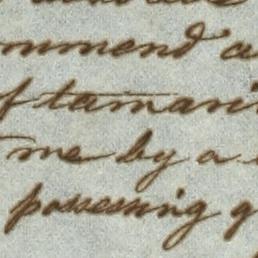 mmend a
f tamari
me by a
possessing g